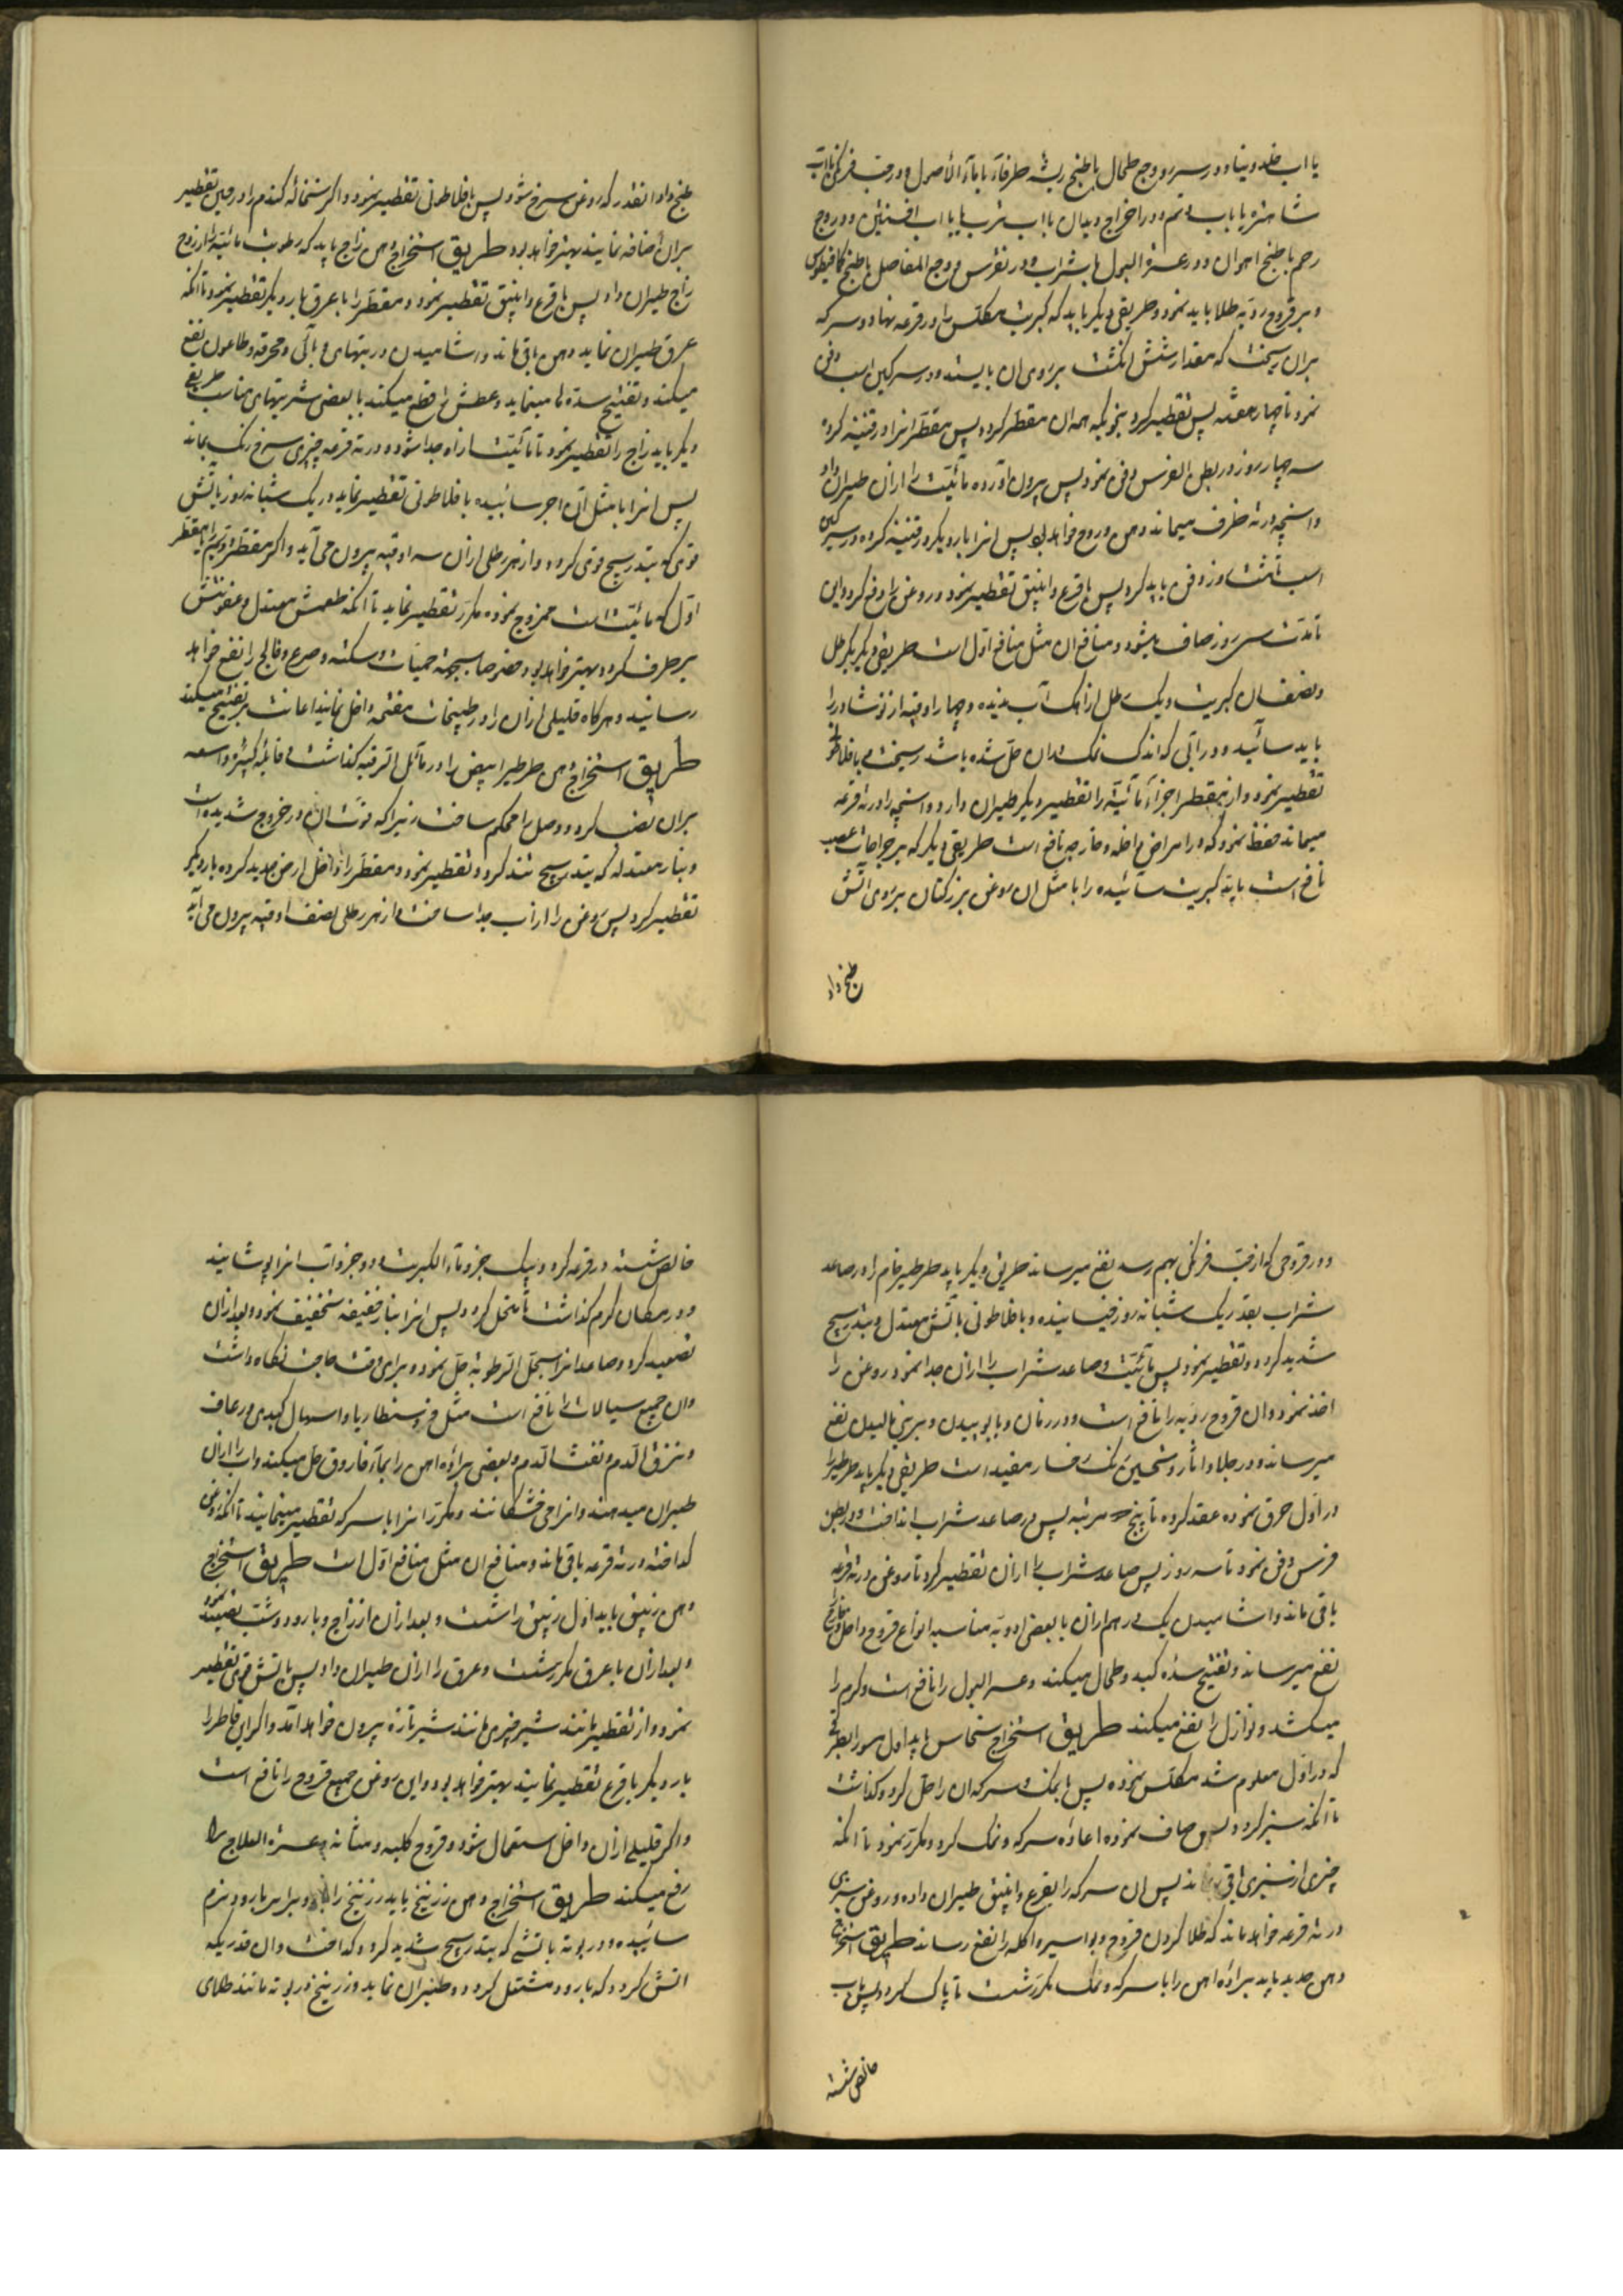 یا اب خلد وینا و در سپرز و وجع طحال با طبخ ریشه طرفا و یا با ماء الاصول و در حب فرنکی با اب
شاهتره یا باب و در اخراج دیدان با اب یا با اب افسنتین و در وجع
رحم با طبخ و در عسرة البول با شراب و در نقرس و وجع المفاصل با طبخ کمافیطوس
و بر قروح ردیه طلا باید نمود و طریقی دیکر باید که کبریت مکلس را در قرعه نهاد و سرکه
بران ریخت که مقدار شش انکشت بر روی ان بایستد و در سرکین اسب دفن
نمود تا چهار هفته پس تقطیر کرد بنحویکه همه ان مقطر کردد پس مقطر انرا در قنینه کرده
سه چهار روز در بطن الفرس دفن نمود پس بیرون آورده مائیت را ازان طیران داد
و انچه در ته ظرف میماند دهن و روح خواهد بود پس انرا بار دیکر در قنینه کرده در سرکین
اسب تا هشت روز دفن باید کرد پس با قرع و انبیق تقطیر نمود و روغن را دفع کرد و این
تا مدت سی روز صاف میشود و منافع ان مثل منافع اول است طریقی دیکر یکرطل
و نصف ان کبریت و یک رطل از اهک آب ندیده و چهار اوقیه از نوشادر را
باید سائید و در آبی که اندک نمک دران حل شده باشد ریخت و با فلاطونی
تقطیر نمود و از مقطر اجزاء مائیه را بتقطیر دیکر طیران داد و انچه را در ته قرعه
میماند حفظ نمود که در امراض داخله و خارجه نافع است طریقی دیکر که بر جراحات عصب
نافع است باید کبریت سائیده را با مثل ان روغن بزر کتان بر روی آتش
طبخ داد

طبخ داد انقدر که روغن سرخ شود پس با فلاطونی تقطیر نمود و اکر کندم را در حین تقطیر
بران اضافه نمایند بهتر خواهد بود طریق استخراج دهن زاج باید که رطوبت مائیه را از روح
زاج طیران داد پس با قرع و انبیق تقطیر نمود و مقطر را با عرق بار دیکر تقطیر نمود تا انکه
عرق طیران نماید و دهن باقی ماند و اشامیدن در تبهای وبائی و محرقه و طاعون نفع
میکند و تفتیح سده ها مینماید و عطش را قطع میکند با بعضی شربتهای مناسب طریقی
دیکر باید زاج را تقطیر نمود تا مائیت ازاو جدا شود و در ته قرعه چیزی سرخ رنک بماند
پس انرا با مثل آن اجر سائیده با فلاطونی تقطیر نماید در یک شبانه روز باتش
قوی که بتدریج قوی کردد و از هر رطلی ازان سه اوقیه بیرون می آید و اکر مقطر دویم را بمقطر
اول که مائیت است ممزوج نموده مکرر تقطیر نماید تا انکه طعمش معتدل و عفونتش
برطرف کردد بهتر خواهد بود خصوصا بجهة حمیات و سکته و صرع و فالج را نفع خواهد
رسانید و هرکاه قلیلی ازان را در طبیخات مفتحه داخل نمایند اعانت بر تفتیح میکند
طریق استخراج دهن طرطیر ابیض را در مائل الرقبه کذاشت و قابله کبیره واسعه
بران نصب کرد و وصل را محکم ساخت زیرا که قوت ان در خروج شدید است
و بنار معتدله که بتدریج تند کردد تقطیر نمود و مقطر را داخل ارض جدید کرده بار دیکر
تقطیر کرد پس روغن را از اب جدا ساخت و از هر رطلی نصف اوقیه بیرون می آید

و در قروحی که از حب فرنکی بهم رسد نفع میرساند طریقی دیکر باید طرطیر خام را در صاعد
شراب بقدر یک شبانه روز خیسانیده و با فلاطونی باتش معتدل و بتدریج
شدید کردد تقطیر نمود پس مائیت و صاعد شراب را ازان جدا نمود و روغن را
اخذ نمود و ان قروح ردیه را نافع است و در نان و بابوییدن و برینی مالیدن نفع
میرساند و در جلاء اثار و تحسین رنک رخسار مفید است طریقی دیکر باید طرطیر را
در اول حرق نموده عقد کرده تا پنج مرتبه پس در صاعد شراب انداخت و در بطن
فرس دفن نمود تا سه روز پس صاعد شراب را ازان تقطیر کرد تا روغن در ته قرعه
باقی ماند و اشامیدن یک درهم ازان با بعضی ادویه مناسبه انواع قروح داخل و خارج را
نفع میرساند و تفتیح سده کبد و طحال میکند و عسر البول را نافع است و کرم را
میکشد و نوازل را نفع میکند طریق استخراج نحاس باید اول مس را بطریقی
که در اول معلوم شد مکلس نموده پس با نمک و سرکه ان را حل کرد و کذاشت
تا انکه سبز کردد پس صاف نموده اعاده سرکه و نمک کرد و مکرر نمود تا انکه
چیزی از سبزی باقی نماند پس ان سرکه را بقرع و انبیق طیران داده و روغن سبزی
در ته قرعه خواهد ماند که طلا کردن قروح و بواسیر و اکله را نفع رساند طریق استخراج
دهن حدید باید براده اهن را با سرکه و نمک مکرر شست تا پاک کردد پس باب
خالص شسته

خالص شسته در قرعه کرد و بیک جزو ماء الکبریت و دو جزو آب انرا پوشانید
و در مکان کرم کذاشت تا منحل کردد پس انرا بنار خفیفه تخفیف نمود و بعد ازان
تصعید کرد و صاعد انرا بمحل الرطوبه حل نمود و برای وقت حاجت نکاه داشت
و ان جمیع سیالات را نافع است مثل ذوسنطاریا و اسهال کبدی و رعاف
و نزف الدم و نفث الدم و بعضی براده اهن را بماء فاروق حل میکنند و اب را ازان
طیران میدهند و انرا می خشکانند و مکرر انرا با سرکه تقطیر مینمایند تا انکه روغنی
کداخته در ته قرعه باقی ماند و منافع ان مثل منافع اول است طریق استخراج
دهن زیبق باید اول زیبق را شست و بعد ازان از زاج و بارود و شب تصعید نمود
و بعد ازان با عرق مکرر شست و عرق را ازان طیران داد پس باتش قوی تقطیر
نمود و از تقطیر مانند شیر چیزی مانند شیر تازه بیرون خواهد آمد و اکر این قاطر را
بار دیکر با قرع تقطیر نمایند بهتر خواهد بود و این روغن جمیع قروح را نافع است
و اکر قلیلی ازان داخل استعمال شود قروح کلیه و مثانه عسرة العلاج را
رفع میکند طریق استخراج دهن زرنیخ باید زرنیخ را با دو برابر بارود نرم
سائیده و در بوته باتشی که بتدریج شدید کردد کداخت و ان قدر که
اتش کردد که بارود مشتعل کردد و طیران نماید و زرنیخ در بوته مانند طلای